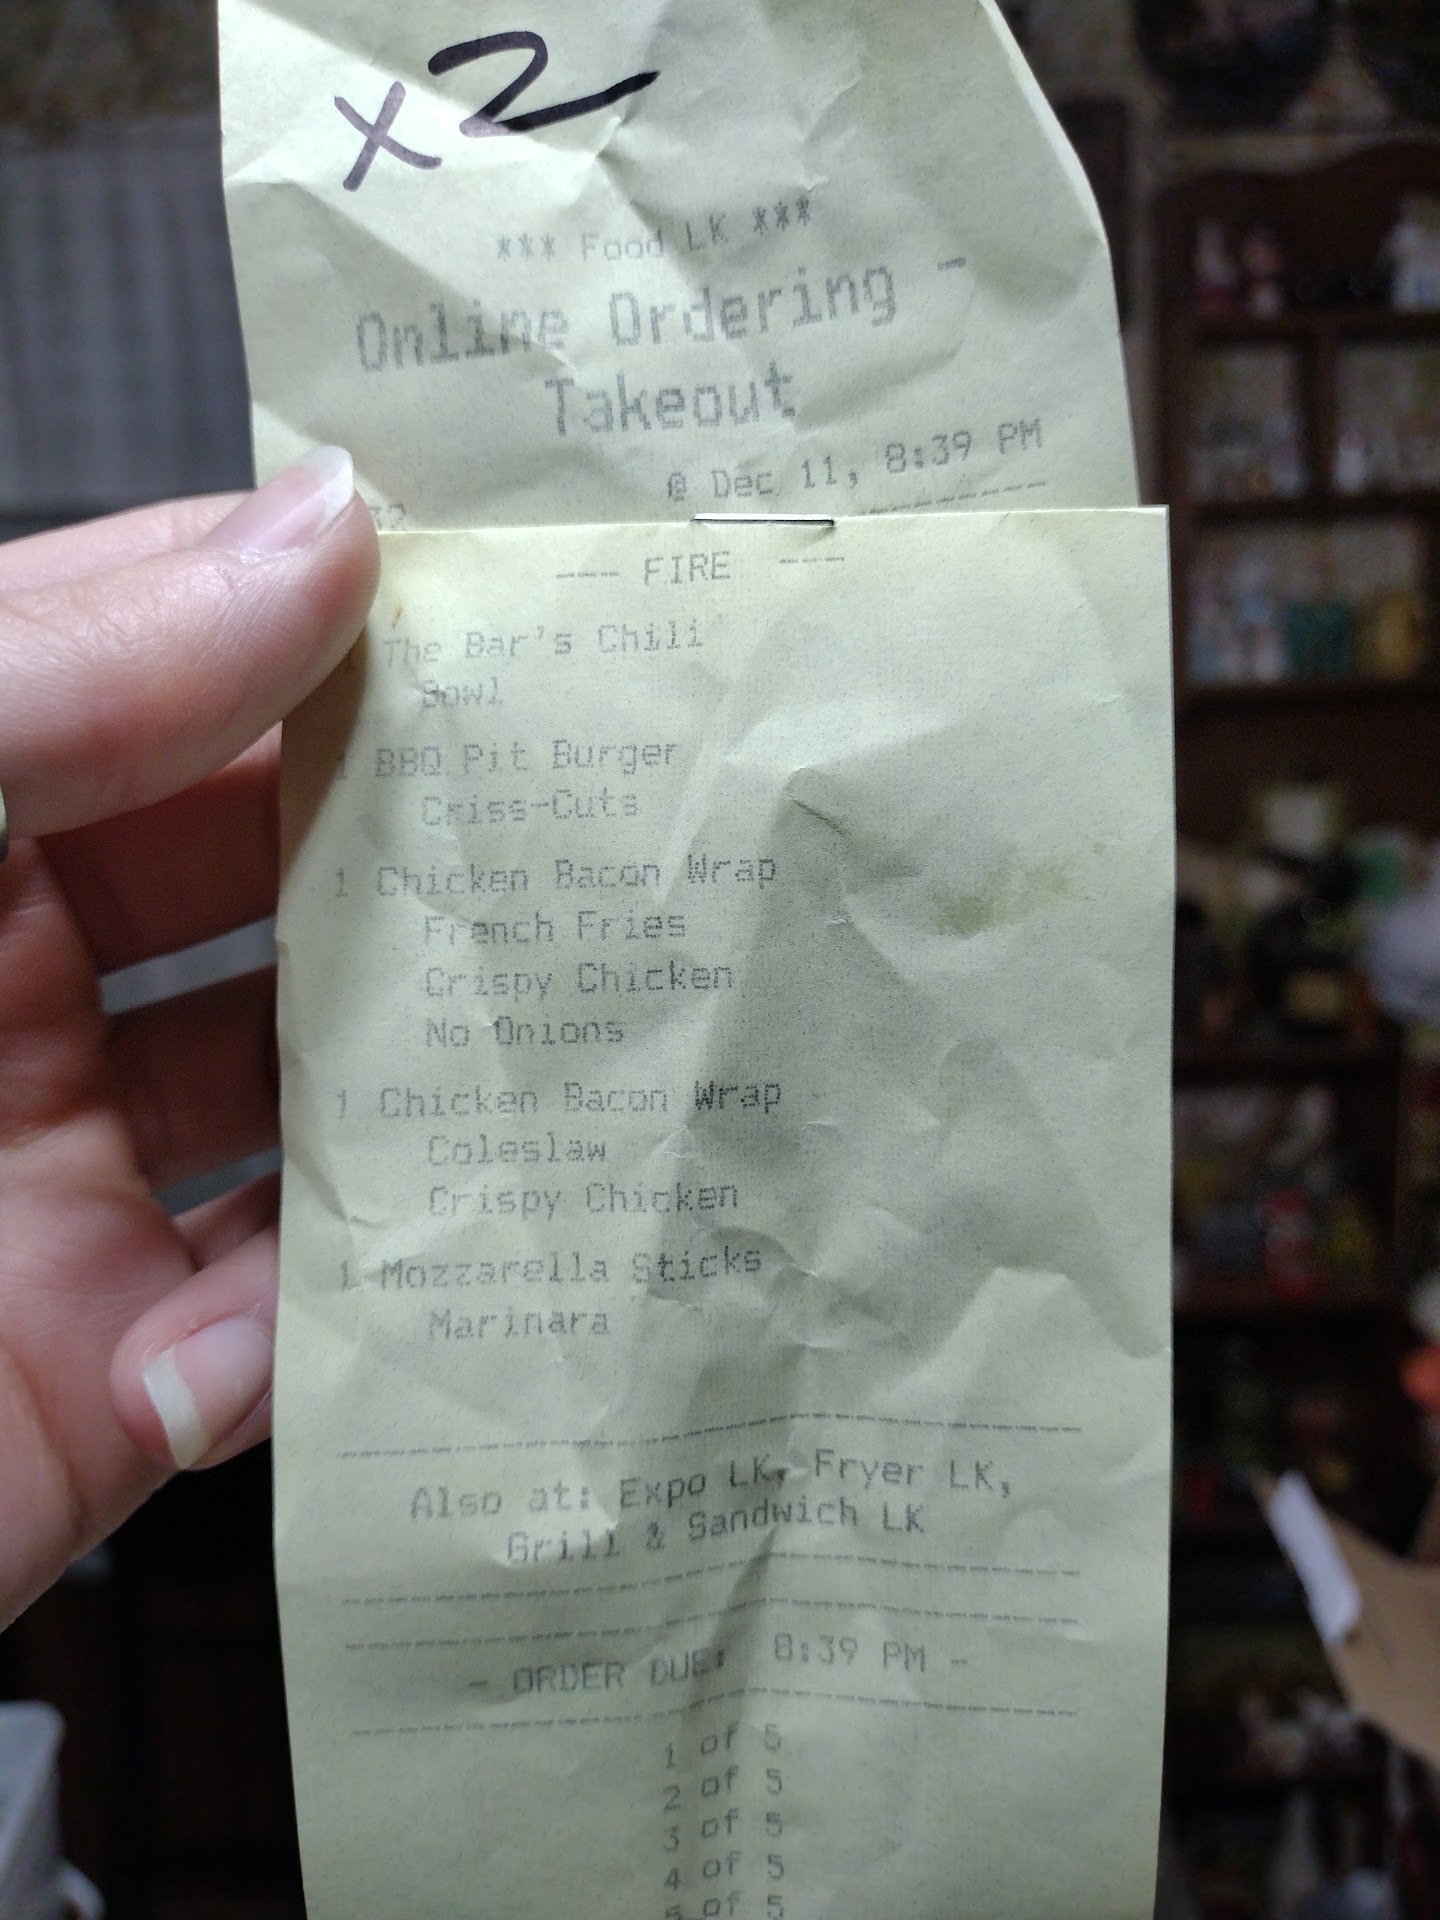 x2
*** Food LK ***
Online Ordering -
Takeout
@ Dec 11, 8:39 PM
--- FIRE ---
The Bar's Chili
Bowl
1 BBQ Pit Burger
Criss-Cuts
1 Chicken Bacon Wrap
French Fries
Crispy Chicken
No Onions
1 Chicken Bacon Wrap
Coleslaw
Crispy Chicken
1 Mozzarella Sticks
Marinara
Also at: Expo LK, Fryer LK,
Grill & Sandwich LK
- ORDER DUE: 8:39 PM -
1 of 5
2 of 5
3 of 5
4 of 5
5 of 5